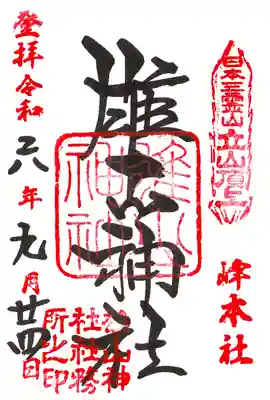 日本三霊山立山頂上
峰本社
雄山神社
雄山神社
登拝令和六年九月廿四日
雄山神社社務所之印